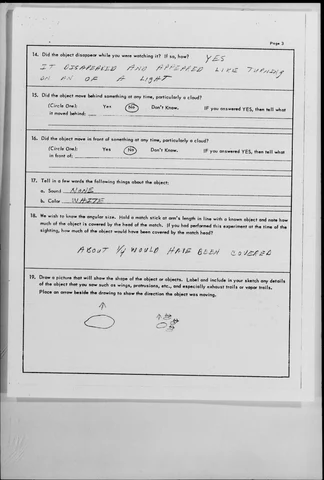 Page 3
14. Did the object disappear while you were watching it? If so, how? YES
IT DISAPEARED AND APPEARED LIKE TURNING
ON AN OF A LIGHT
15. Did the object move behind something at any time, particularly a cloud?
(Circle One): Yes No Don't Know. IF you answered YES, then tell what
it moved behind:
16. Did the object move in front of something at any time, particularly a cloud?
(Circle One): Yes No Don't Know. IF you answered YES, then tell what
in front of:
17. Tell in a few words the following things about the object:
a. Sound NONE
b. Color WHITE
18. We wish to know the angular size. Hold a match stick at arm's length in line with a known object and note how
much of the object is covered by the head of the match. If you had performed this experiment at the time of the
sighting, how much of the object would have been covered by the match head?
ABOUT 1/4 WOULD HAVE BEEN COVERED
19. Draw a picture that will show the shape of the object or objects. Label and include in your sketch any details
of the object that you saw such as wings, protrusions, etc., and especially exhaust trails or vapor trails.
Place an arrow beside the drawing to show the direction the object was moving.